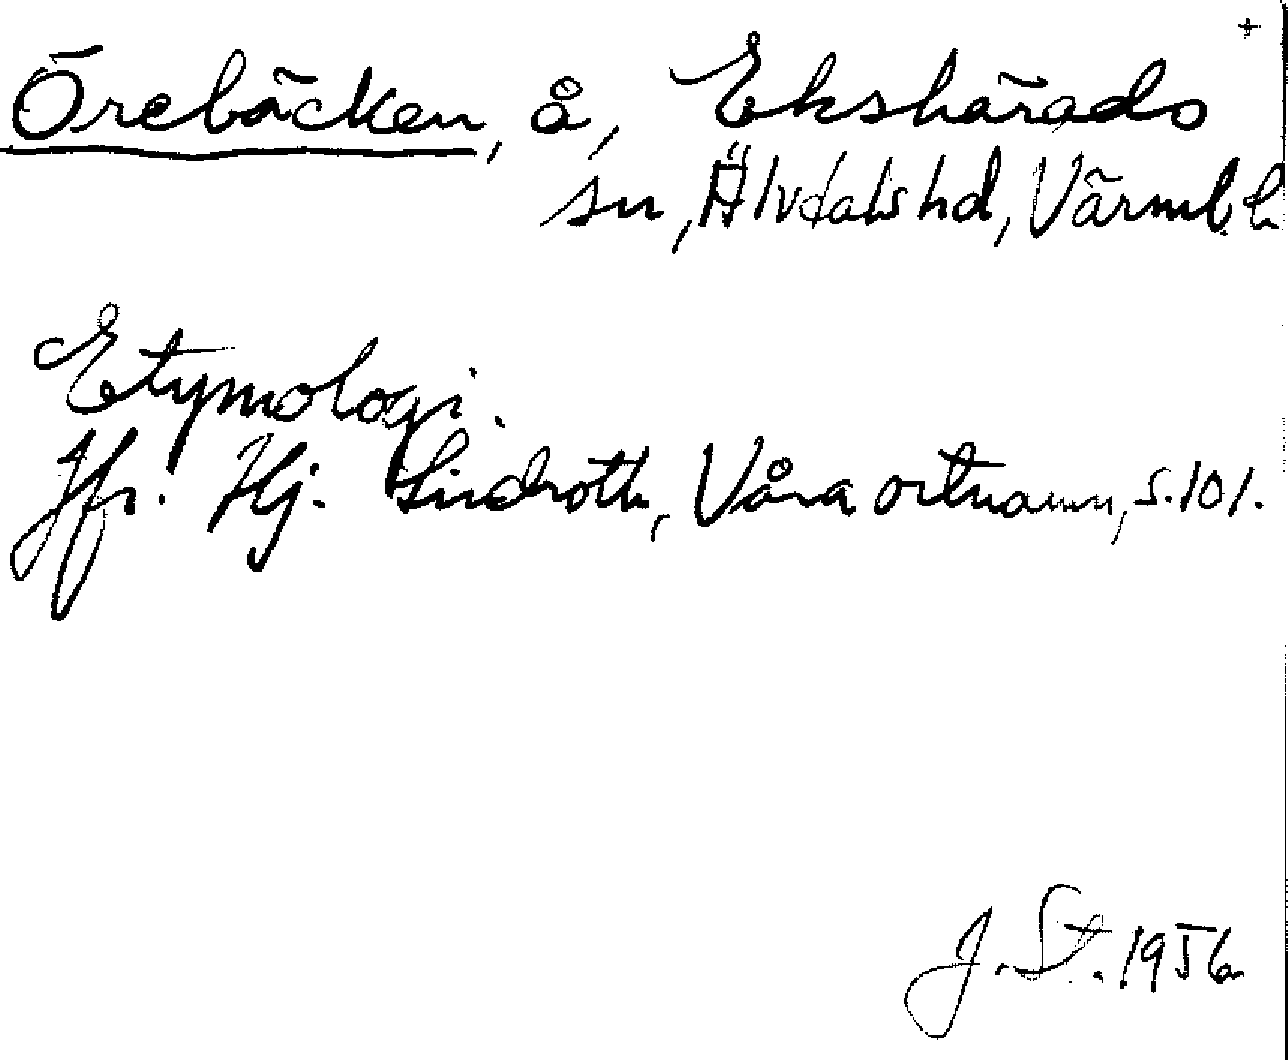 +
Örebäcken, å, Ekshärads
sn, Älvdals hd, Värml. l.
Etymologi.
Jfr. Hj. Lindroth, Våra ortnamn, s. 101.
J. St. 1956